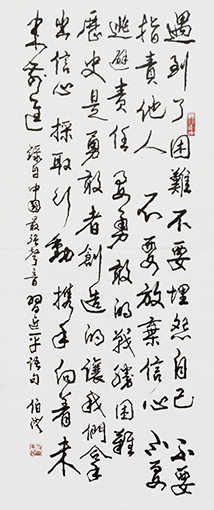 遇到了困難不要埋怨自己不要
指責他人不要放棄信心不要
逃避責任要勇敢的戰勝困難
歷史是勇敢者創造的讓我們拿
出信心採取行動携手向着未
來前進 錄自中國最强聲音習近平語句 伯